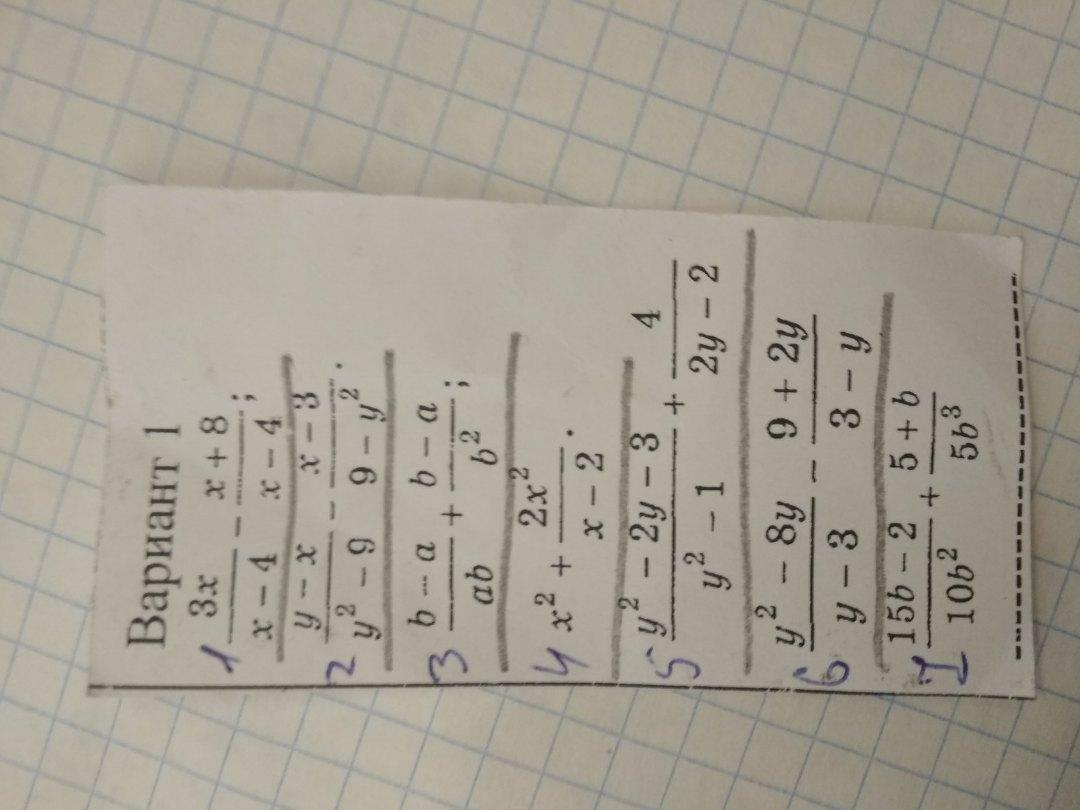 Вариант 1
1 \frac{3x}{x-4} - \frac{x+8}{x-4};
2 \frac{y-x}{y^2-9} - \frac{x-3}{9-y^2}.
3 \frac{b-a}{ab} + \frac{b-a}{b^2};
4 x^2 + \frac{2x^2}{x-2}.
5 \frac{y^2-2y-3}{y^2-1} + \frac{4}{2y-2}
6 \frac{y^2-8y}{y-3} - \frac{9+2y}{3-y}
7 \frac{15b-2}{10b^2} + \frac{5+b}{5b^3}